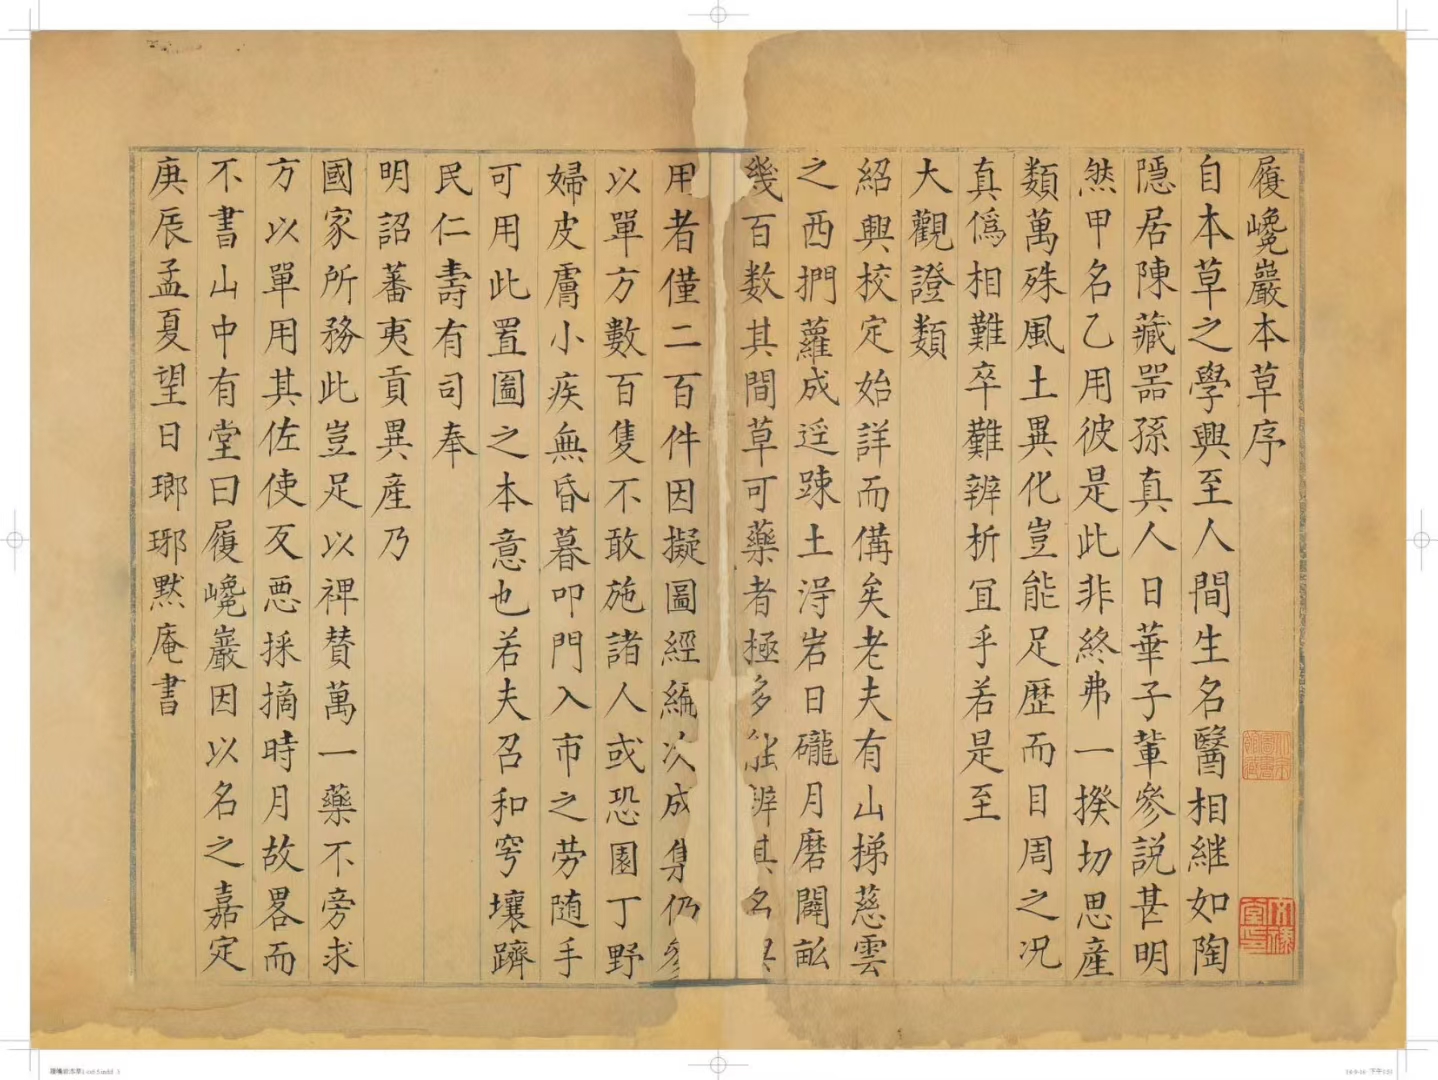 履巉巖本草序
自本草之學興至人間生名醫相繼如陶
隱居陳藏器孫真人日華子輩參説甚明
然甲名乙用彼是此非終弗一揆切思產
類萬殊風土異化豈能足歷而目周之况
真僞相難卒難辨析冝乎若是至
大觀證類
紹興校定始詳而備矣老夫有山梯慈雲
之西捫蘿成逕踈土淂岩日礲月磨闢畆
幾百数其間草可藥者極多能辨其名
用者僅二百件因擬圖經編次成集仍參
以單方數百隻不敢施諸人或恐園丁野
婦皮膚小疾無昏暮叩門入市之劳随手
可用此置圖之本意也若夫召和穹壤躋
民仁壽有司奉
明詔蕃夷貢異產乃
國家所務此豈足以裨賛萬一藥不旁求
方以單用其佐使反惡採摘時月故畧而
不書山中有堂曰履巉巖因以名之嘉定
庚辰孟夏望日瑯琊默庵書